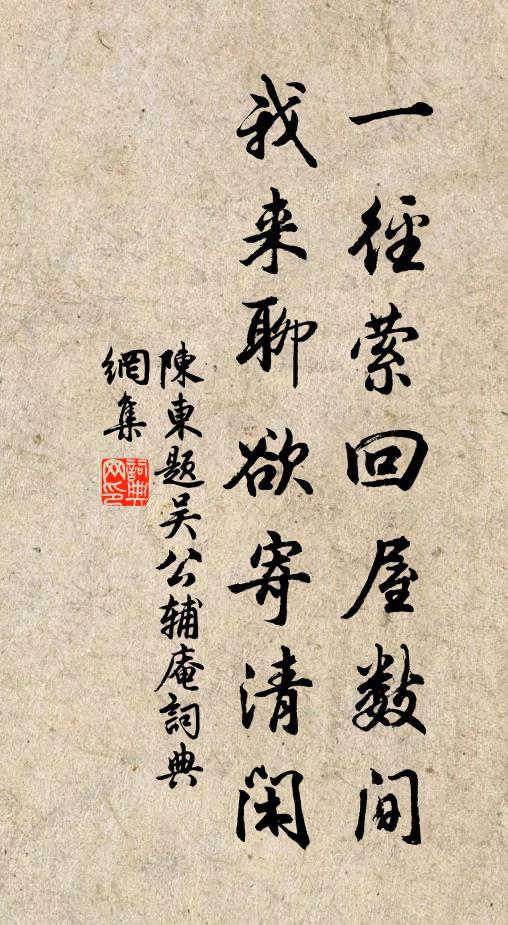 一徑萦回屋数间
我来聊欲寄清闲
陳東題吴公辅庵詞典
網集
詞典网印